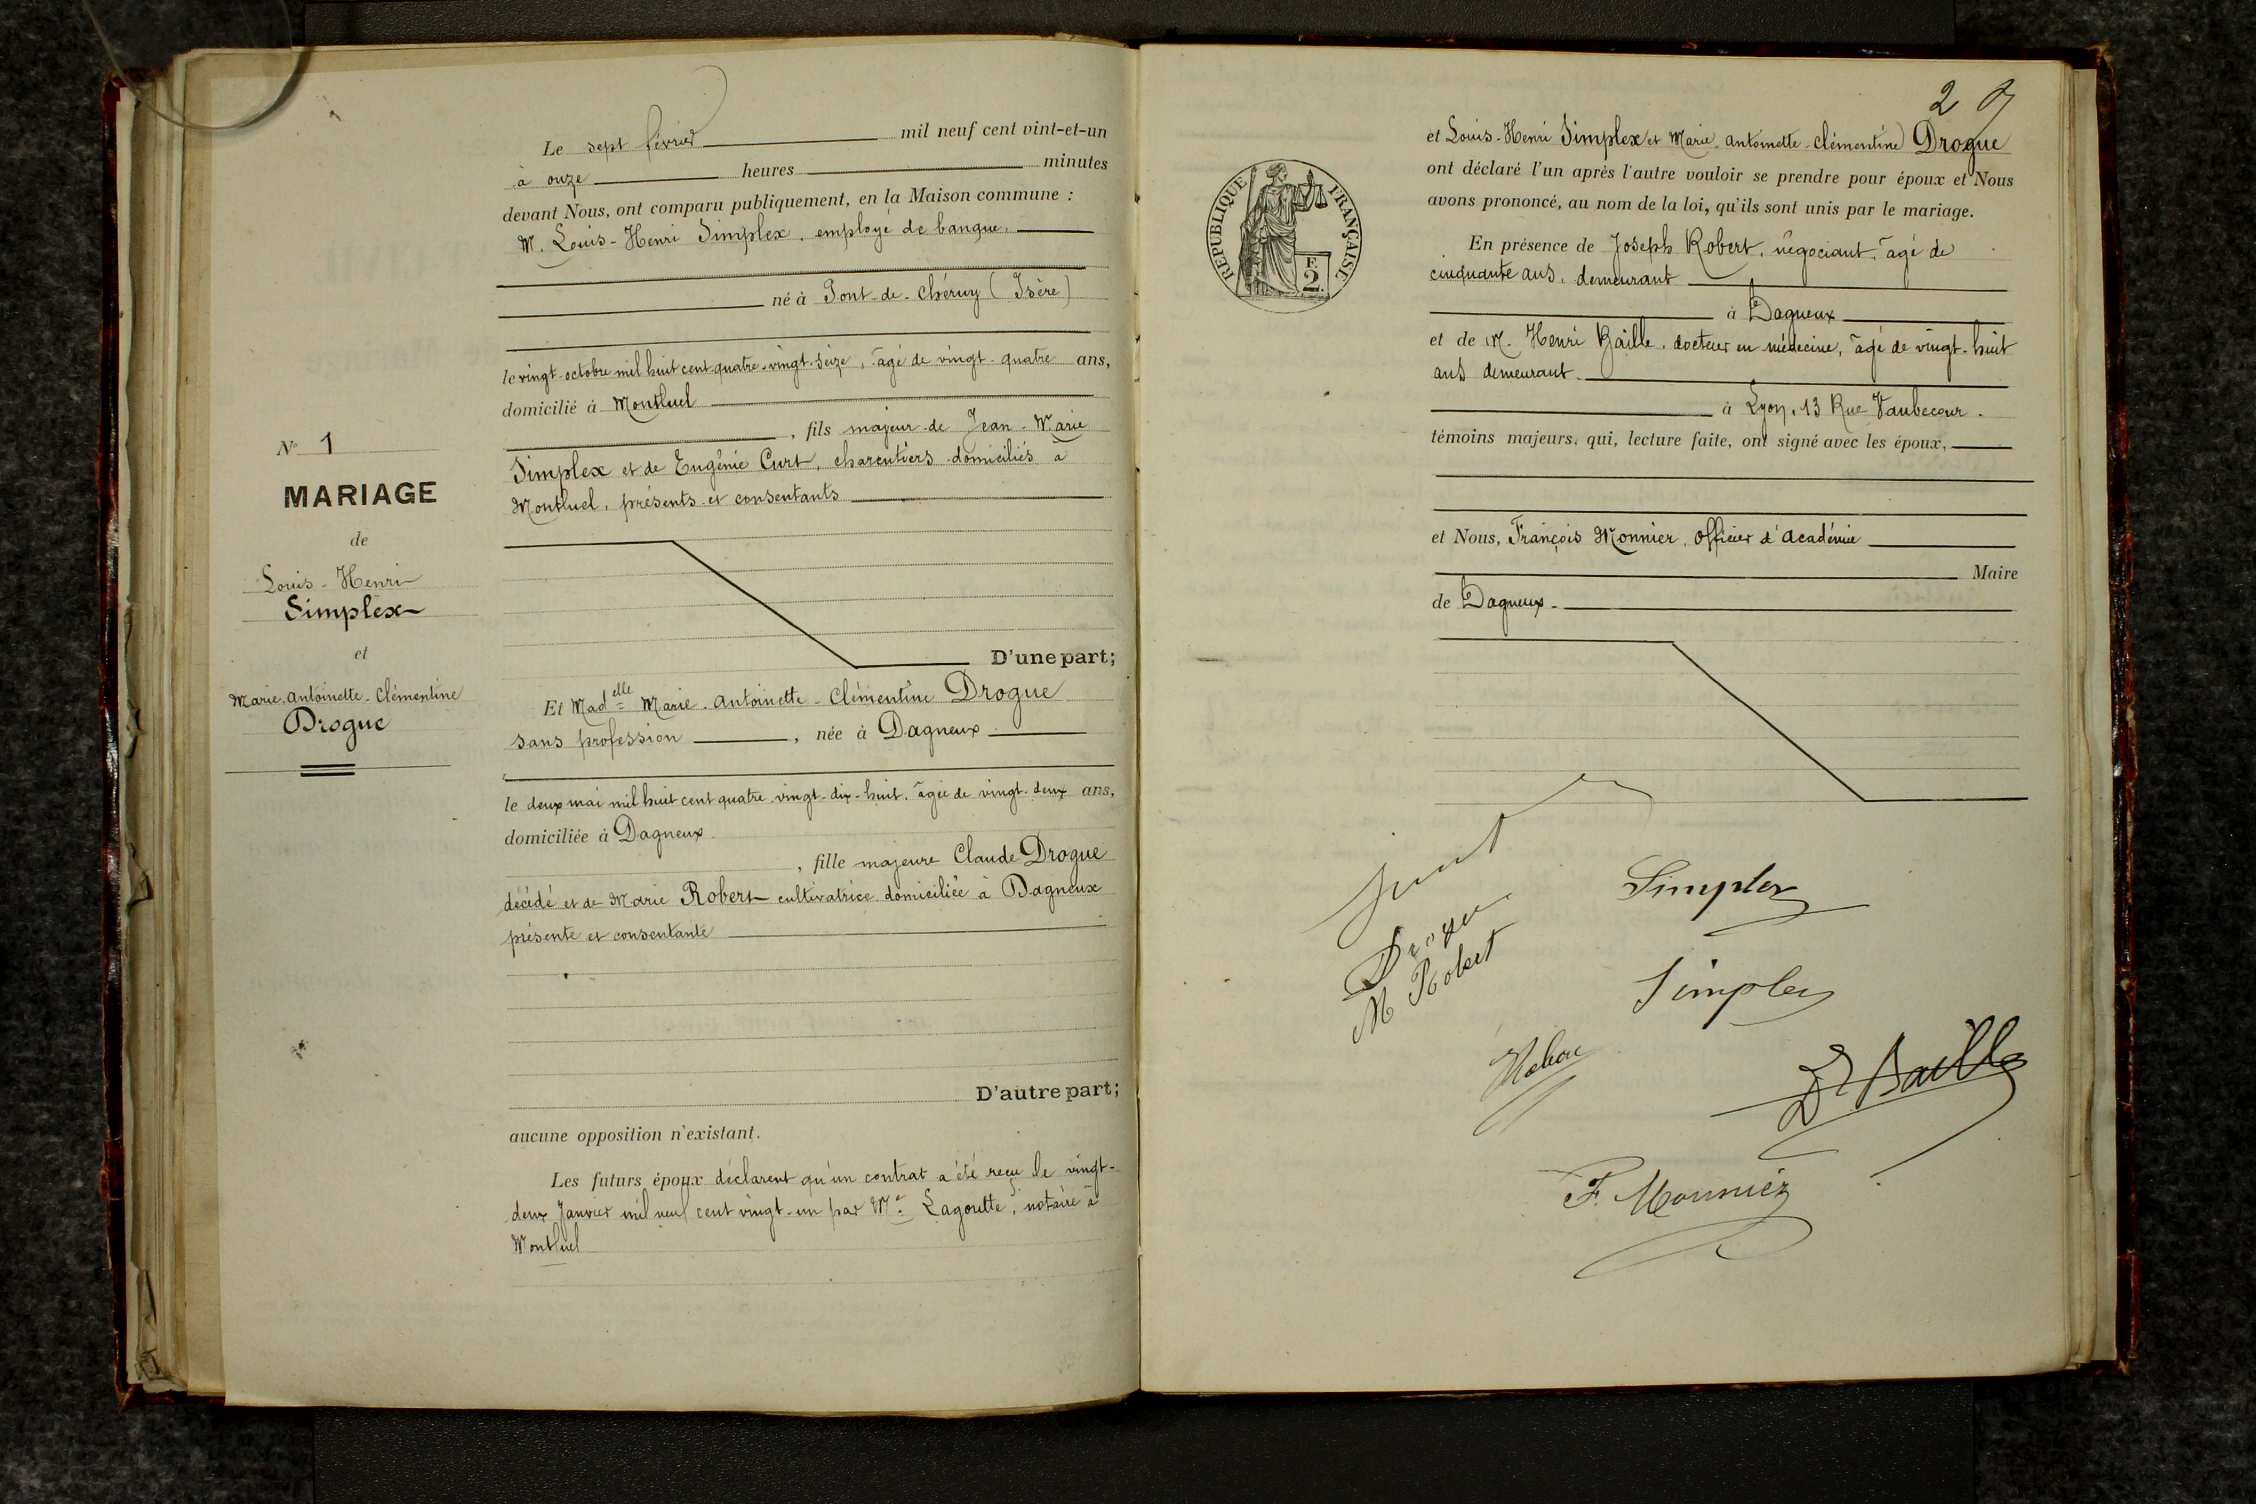 N° 1
MARIAGE
de
Louis-Henri
Simplex
et
Marie-Antoinette-Clémentine
Drogue
Le sept février mil neuf cent vint-et-un
à onze heures minutes
devant Nous, ont comparu publiquement, en la Maison commune :
M. Louis-Henri Simplex, employé de banque,
né à Pont-de-Chéruy (Isère)
le vingt octobre mil huit cent quatre-vingt-seize, âgé de vingt-quatre ans,
domicilié à Montluel
, fils majeur de Jean-Marie
Simplex et de Eugénie Curt, charcutiers domiciliés à
Montluel, présents et consentants
D'une part;
Et Mad<sup>elle</sup> Marie-Antoinette-Clémentine Drogue
sans profession , née à Dagneux
le deux mai mil huit cent quatre-vingt-dix-huit, âgée de vingt-deux ans,
domiciliée à Dagneux
, fille majeure Claude Drogue
décédé et de Marie Robert cultivatrice domiciliée à Dagneux
présente et consentante
D'autre part;
aucune opposition n'existant.
Les futurs époux déclarent qu'un contrat a été reçu le vingt-
deux Janvier mil neuf cent vingt-un par M<sup>e</sup> Lagoutte, notaire à
Montluel
2
RÉPUBLIQUE FRANÇAISE
F.
2.
et Louis-Henri Simplex et Marie-Antoinette-Clémentine Drogue
ont déclaré l'un après l'autre vouloir se prendre pour époux et Nous
avons prononcé, au nom de la loi, qu'ils sont unis par le mariage.
En présence de Joseph Robert, négociant, âgé de
cinquante ans, demeurant
à Dagneux
et de M. Henri Baille, docteur en médecine, âgé de vingt-huit
ans demeurant
à Lyon, 13 Rue Vaubecour.
témoins majeurs, qui, lecture faite, ont signé avec les époux,
et Nous, François Monnier, officier d'Académie
Maire
de Dagneux.
Simplex
Drogue
M Robert
Simplex
Dr Baille
F. Monnier